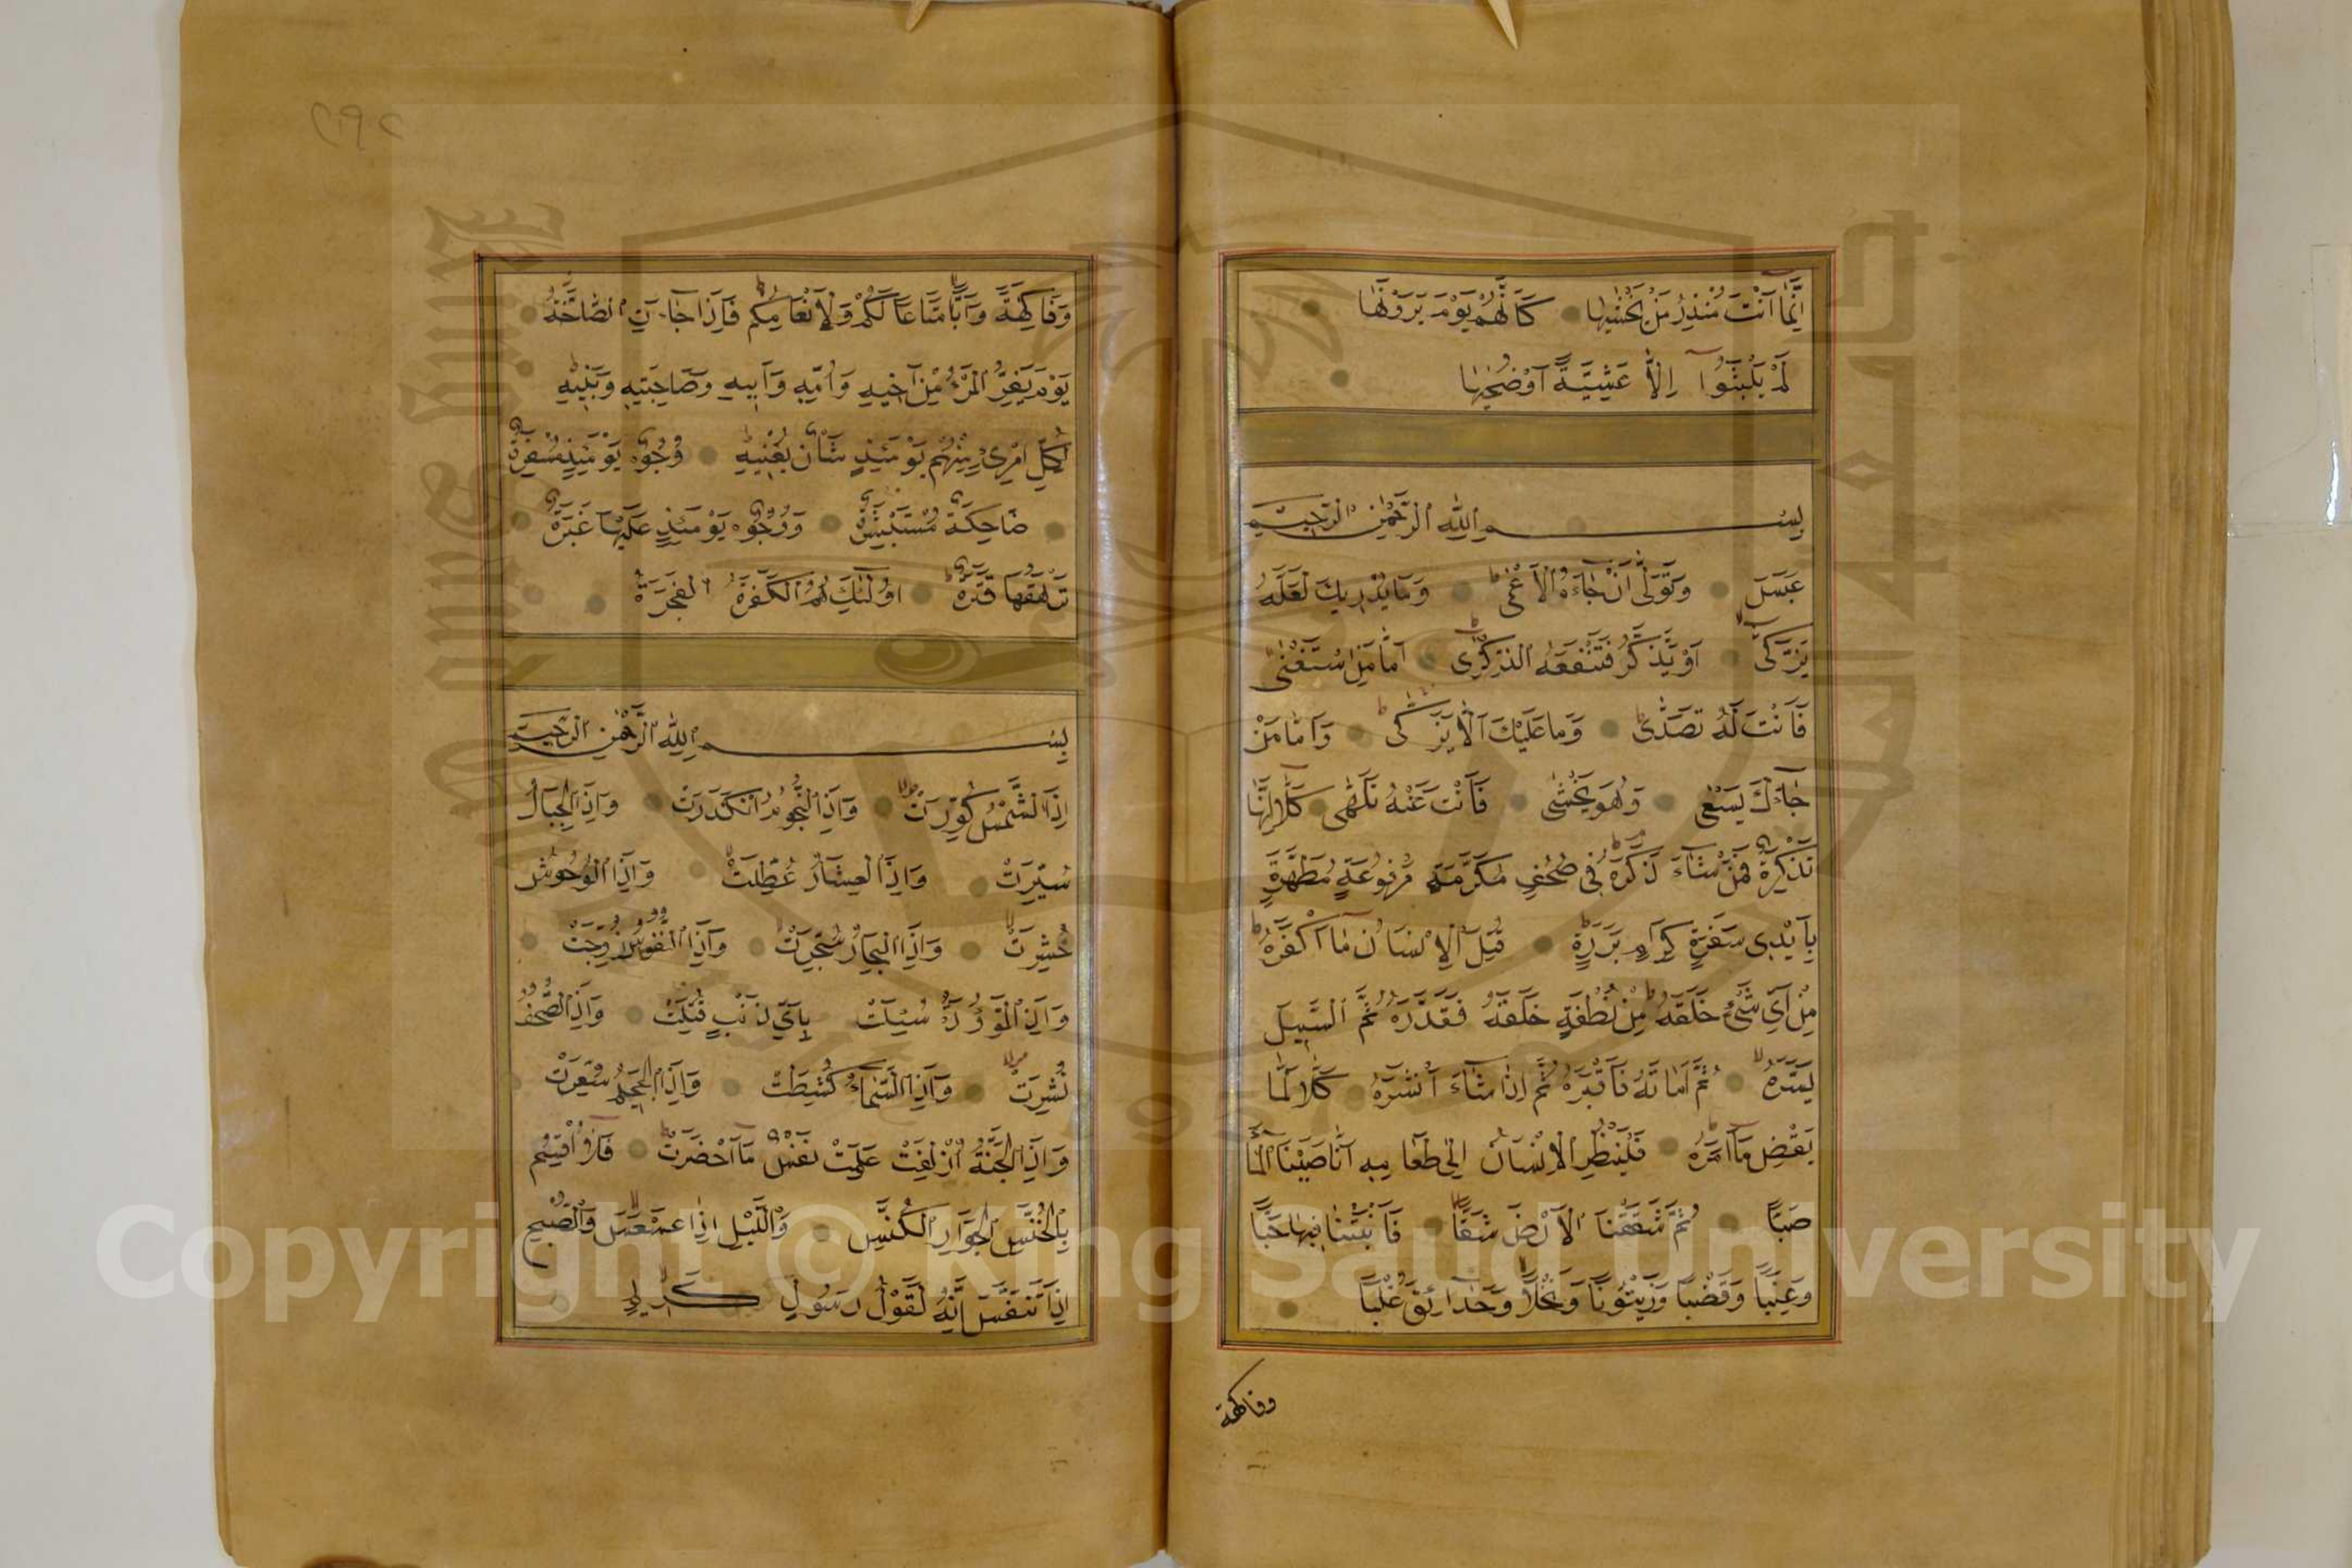 اِنَّمَا اَنْتَ مُنْذِرُ مَنْ يَخْشٰيهَا كَاَنَّهُمْ يَوْمَ يَرَوْنَهَا
لَمْ يَلْبَثُوا اِلَّا عَشِيَّةً اَوْ ضُحٰيهَا
بِسْمِ اللهِ الرَّحْمٰنِ الرَّحِيمِ
عَبَسَ وَتَوَلّٰى اَنْ جَاءَهُ الْاَعْمٰى وَمَا يُدْرِيكَ لَعَلَّهُ
يَزَّكّٰى اَوْ يَذَّكَّرُ فَتَنْفَعَهُ الذِّكْرٰى اَمَّا مَنِ اسْتَغْنٰى
فَاَنْتَ لَهُ تَصَدّٰى وَمَا عَلَيْكَ اَلَّا يَزَّكّٰى وَاَمَّا مَنْ
جَاءَكَ يَسْعٰى وَهُوَ يَخْشٰى فَاَنْتَ عَنْهُ تَلَهّٰى كَلَّا اِنَّهَا
تَذْكِرَةٌ فَمَنْ شَاءَ ذَكَرَهُ فِى صُحُفٍ مُكَرَّمَةٍ مَرْفُوعَةٍ مُطَهَّرَةٍ
بِاَيْدِى سَفَرَةٍ كِرَامٍ بَرَرَةٍ قُتِلَ الْاِنْسَانُ مَا اَكْفَرَهُ
مِنْ اَىِّ شَىْءٍ خَلَقَهُ مِنْ نُطْفَةٍ خَلَقَهُ فَقَدَّرَهُ ثُمَّ السَّبِيلَ
يَسَّرَهُ ثُمَّ اَمَاتَهُ فَاَقْبَرَهُ ثُمَّ اِذَا شَاءَ اَنْشَرَهُ كَلَّا لَمَّا
يَقْضِ مَا اَمَرَهُ فَلْيَنْظُرِ الْاِنْسَانُ اِلٰى طَعَامِهِ اَنَّا صَبَبْنَا الْمَاءَ
صَبًّا ثُمَّ شَقَقْنَا الْاَرْضَ شَقًّا فَاَنْبَتْنَا فِيهَا حَبًّا
وَعِنَبًا وَقَضْبًا وَزَيْتُونًا وَنَخْلًا وَحَدَائِقَ غُلْبًا
وفاكهة
وَفَاكِهَةً وَاَبًّا مَتَاعًا لَكُمْ وَلِاَنْعَامِكُمْ فَاِذَا جَاءَتِ الصَّاخَّةُ
يَوْمَ يَفِرُّ الْمَرْءُ مِنْ اَخِيهِ وَاُمِّهِ وَاَبِيهِ وَصَاحِبَتِهِ وَبَنِيهِ
لِكُلِّ امْرِئٍ مِنْهُمْ يَوْمَئِذٍ شَاْنٌ يُغْنِيهِ وُجُوهٌ يَوْمَئِذٍ مُسْفِرَةٌ
ضَاحِكَةٌ مُسْتَبْشِرَةٌ وَوُجُوهٌ يَوْمَئِذٍ عَلَيْهَا غَبَرَةٌ
تَرْهَقُهَا قَتَرَةٌ اُولٰئِكَ هُمُ الْكَفَرَةُ الْفَجَرَةُ
بِسْمِ اللهِ الرَّحْمٰنِ الرَّحِيمِ
اِذَا الشَّمْسُ كُوِّرَتْ وَاِذَا النُّجُومُ انْكَدَرَتْ وَاِذَا الْجِبَالُ
سُيِّرَتْ وَاِذَا الْعِشَارُ عُطِّلَتْ وَاِذَا الْوُحُوشُ
حُشِرَتْ وَاِذَا الْبِحَارُ سُجِّرَتْ وَاِذَا النُّفُوسُ زُوِّجَتْ
وَاِذَا الْمَوْؤُدَةُ سُئِلَتْ بِاَىِّ ذَنْبٍ قُتِلَتْ وَاِذَا الصُّحُفُ
نُشِرَتْ وَاِذَا السَّمَاءُ كُشِطَتْ وَاِذَا الْجَحِيمُ سُعِّرَتْ
وَاِذَا الْجَنَّةُ اُزْلِفَتْ عَلِمَتْ نَفْسٌ مَا اَحْضَرَتْ فَلَا اُقْسِمُ
بِالْخُنَّسِ الْجَوَارِ الْكُنَّسِ وَالَّيْلِ اِذَا عَسْعَسَ وَالصُّبْحِ
اِذَا تَنَفَّسَ اِنَّهُ لَقَوْلُ رَسُولٍ كَرِيمٍ
Copyright © King Saud University
1957